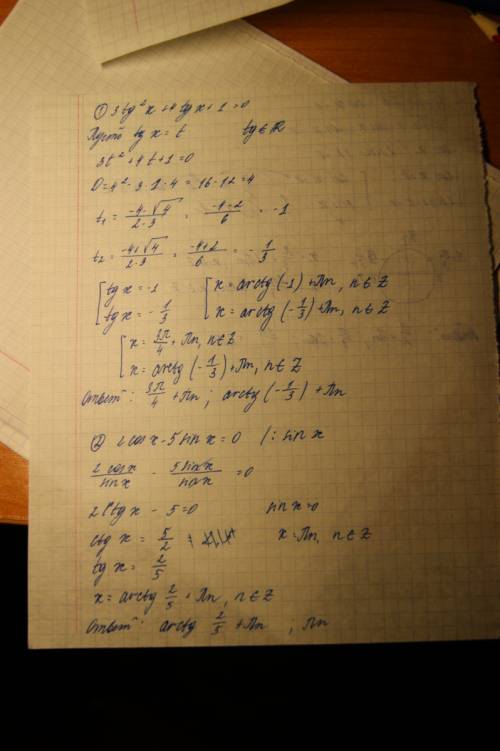 ① 3tg²x+4tgx+1=0
Пусть tg x = t tg ∈ R
3t²+4t+1=0
D=4²-3·1·4=16-12=4
t₁ = (-4-√4)/(2·3) = (-4-2)/6 = -1
t₂ = (-4+√4)/(2·3) = (-4+2)/6 = -1/3
[tgx = -1 [x = arctg(-1)+πn, n∈Z
[tgx = -1/3 [x = arctg(-1/3)+πn, n∈Z
[x = 3π/4 + πn, n∈Z
[x = arctg(-1/3)+πn, n∈Z
Ответ: 3π/4 + πn; arctg(-1/3) + πn
② 2cosx-5sinx=0 /: sin x
2cosx/sinx - 5sinx/sinx = 0
2ctgx - 5=0 sin x=0
ctg x = 5/2 x=πn, n∈Z
tg x = 2/5
x = arctg 2/5 + πn, n∈Z
Ответ: arctg 2/5 + πn ; πn